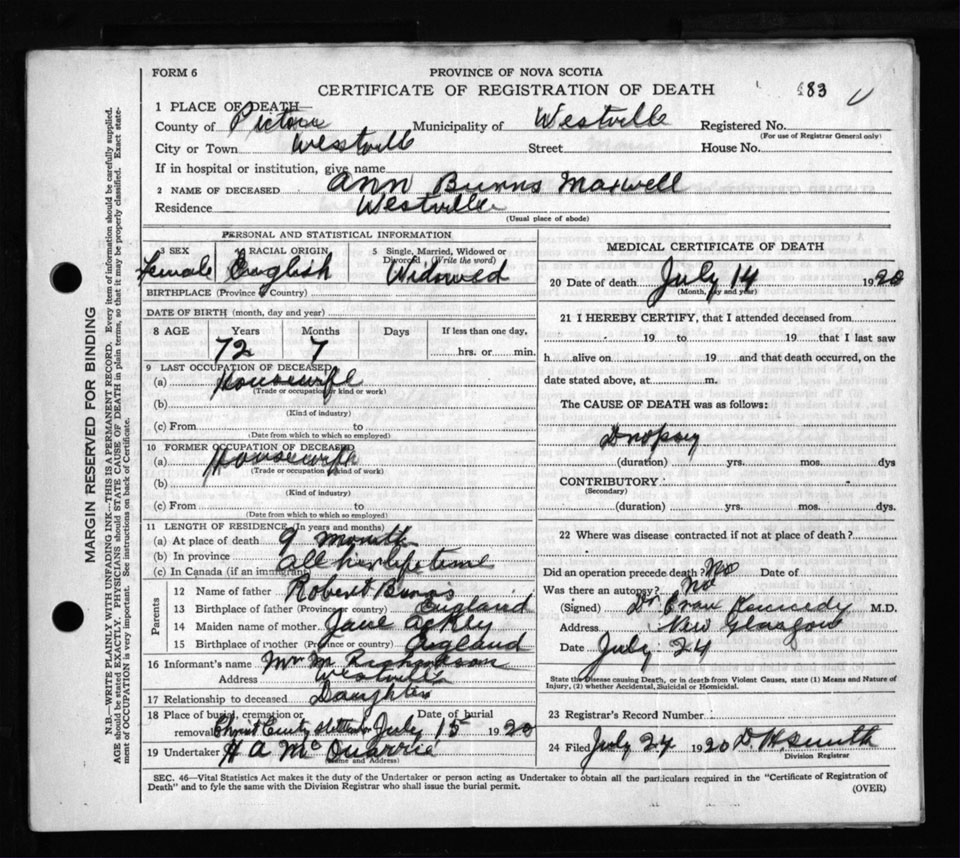 FORM 6
PROVINCE OF NOVA SCOTIA
CERTIFICATE OF REGISTRATION OF DEATH
83
1 PLACE OF DEATH
County of Pictou Municipality of Westville Registered No.
(For use of Registrar General only)
City or Town Westville Street House No.
If in hospital or institution, give name
2 NAME OF DECEASED Ann Burns Maxwell
Residence Westville
(Usual place of abode)
PERSONAL AND STATISTICAL INFORMATION
3 SEX 4 RACIAL ORIGIN 5 Single, Married, Widowed or Divorced (Write the word)
Female English Widowed
BIRTHPLACE (Province or Country)
DATE OF BIRTH (month, day and year)
8 AGE Years Months Days If less than one day,
72 7 hrs. or min.
9 LAST OCCUPATION OF DECEASED
(a) Housewife
(Trade or occupation or kind or work)
(b)
(Kind of industry)
(c) From to
(Date from which to which so employed)
10 FORMER OCCUPATION OF DECEASED
(a) Housewife
(Trade or occupation or kind of work)
(b)
(Kind of industry)
(c) From to
(Date from which to which so employed)
11 LENGTH OF RESIDENCE (In years and months)
(a) At place of death 9 month
(b) In province all her life time
(c) In Canada (if an immigrant)
Parents
12 Name of father Robert Burns
13 Birthplace of father (Province or country) England
14 Maiden name of mother Jane
15 Birthplace of mother (Province or country) England
16 Informant's name M. Richardson
Address Westville
17 Relationship to deceased Daughter
18 Place of burial, cremation or removal Date of burial
July 15 1920
19 Undertaker H A McQuarrie
(Name and Address)
MEDICAL CERTIFICATE OF DEATH
20 Date of death July 14 1920
(Month, day and year)
21 I HEREBY CERTIFY, that I attended deceased from
19 to 19 that I last saw
h alive on 19 and that death occurred, on the
date stated above, at m.
The CAUSE OF DEATH was as follows:
Dropsy
(duration) yrs. mos. dys
CONTRIBUTORY
(Secondary)
(duration) yrs. mos. dys.
22 Where was disease contracted if not at place of death?
Did an operation precede death? No Date of
Was there an autopsy? No
(Signed) Dr Evan Kennedy M.D.
Address New Glasgow
Date July 24
State the Disease causing Death, or in death from Violent Causes, state (1) Means and Nature of
Injury, (2) whether Accidental, Suicidal or Homicidal.
23 Registrar's Record Number
24 Filed July 24 1920 D. H. Smith
Division Registrar
SEC. 46—Vital Statistics Act makes it the duty of the Undertaker or person acting as Undertaker to obtain all the particulars required in the "Certificate of Registration of
Death" and to fyle the same with the Division Registrar who shall issue the burial permit.
(OVER)
MARGIN RESERVED FOR BINDING
N.B.—WRITE PLAINLY WITH UNFADING INK—THIS IS A PERMANENT RECORD. Every item of information should be carefully supplied.
AGE should be stated EXACTLY. PHYSICIANS should STATE CAUSE OF DEATH in plain terms, so that it may be properly classified. Exact statement
of OCCUPATION is very important. See instructions on back of Certificate.